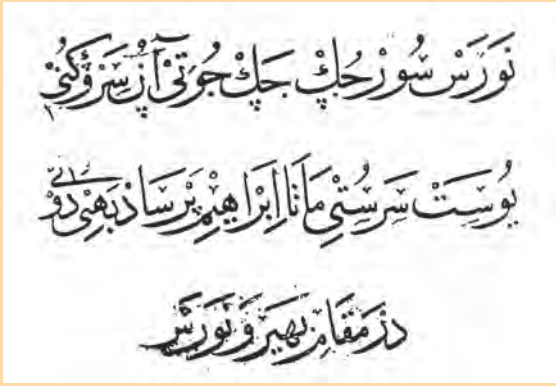 نَورَسْ سُورْ جُكْ جَكْ جُوتِيْ آنْ سَرْوَكُنِيْ
يُوسِتْ سَرَسُتِيْ مَاتَا اِبْرَاهِيْمْ پَرَسَادْ بَهِيْ دُونِيْ
دَرْ مَقَامِ بَهِيرَوْ نَورَسْ